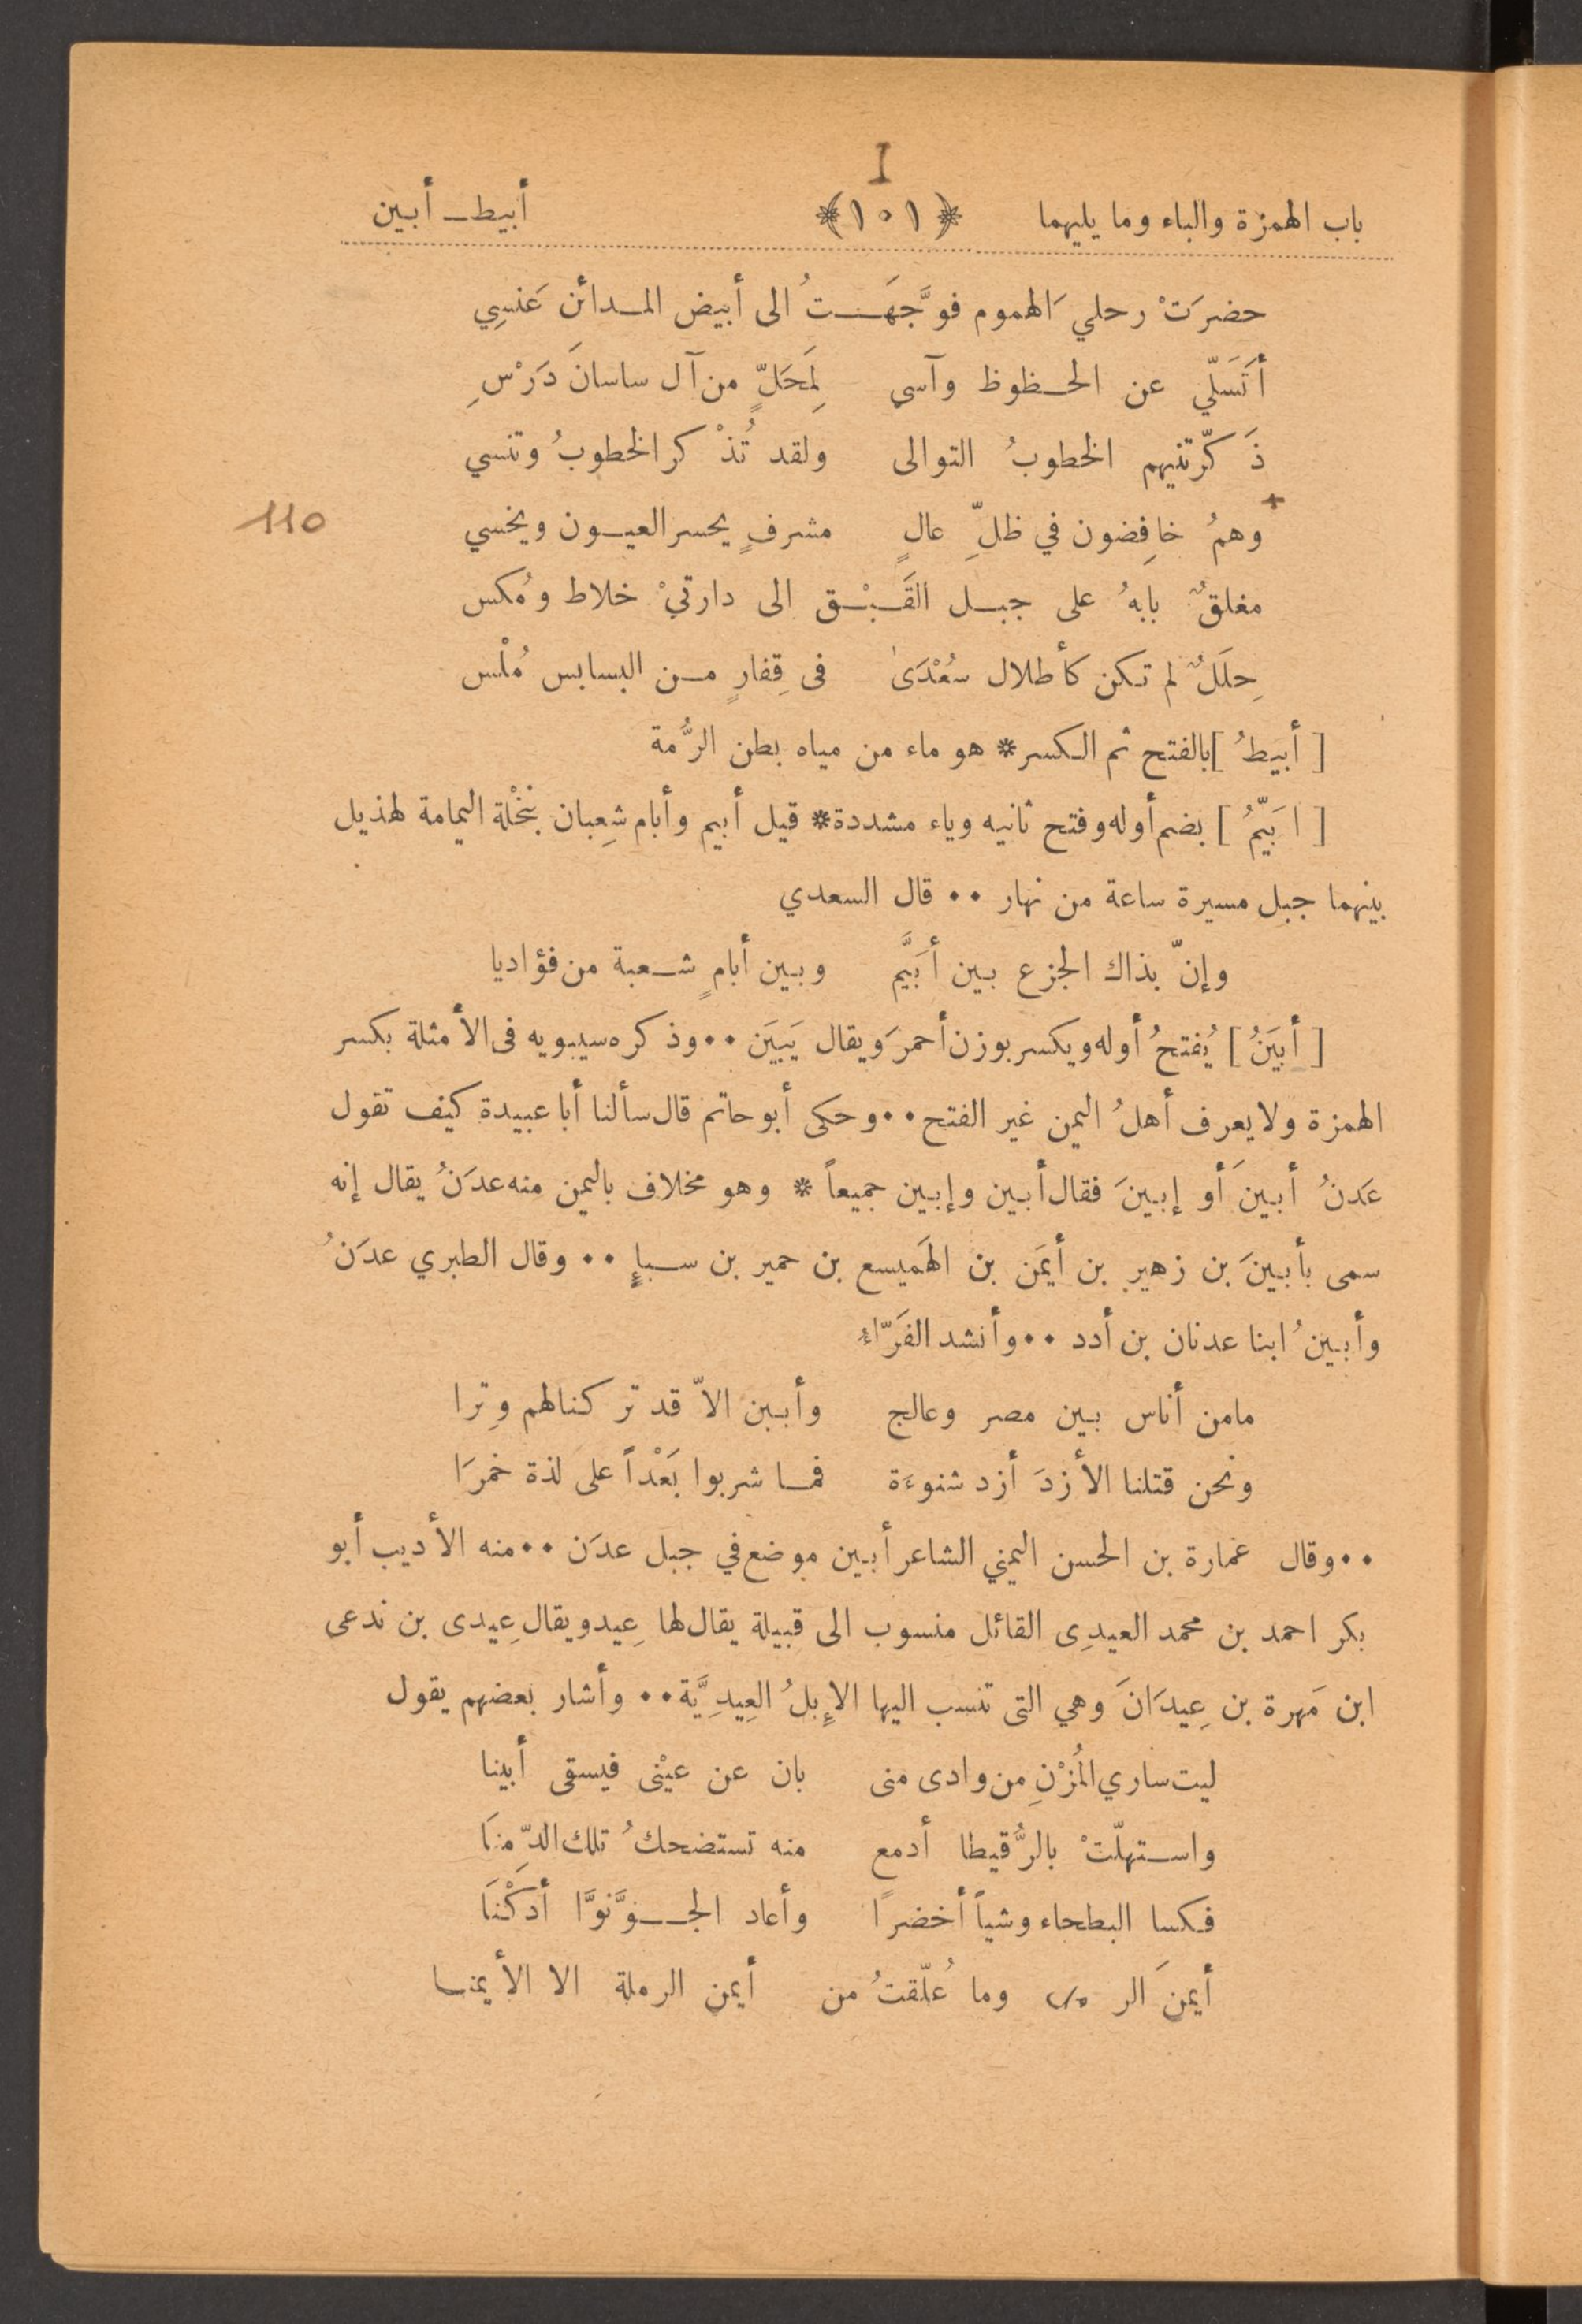 I
باب الهمزة والباء وما يليهما ﴿١٠١﴾ أبيط ــ أبين
حضرَتْ رحليَ الهموم فوَّجَهَـتُ الى أبيض المـدائن عَنسِي
أتَسَلّي عن الحـظوظ وآسي لِمَحَلٍّ من آل ساسانَ دَرْسِ
ذَكّرتنيهم الخطوبُ التوالى ولقد تُذْكر الخطوبُ وتنسي
110
+
وهمُ خافِضون في ظلِّ عالٍ مشرفٍ يحسر العيـون ويخسي
مغلقٌ بابهُ على جبـل القَـبْـق الى دارتيْ خلاط ومُكس
حِلَلٌ لم تـكن كأطلال سُعْدَىٰ فى قِفارٍ مـن البسابس مُلْس
[ أبيطُ ] بالفتح ثم الـكسر * هو ماء من مياه بطن الرُّمة
[ ابَيّمُ ] بضم أوله وفتح ثانيه وياء مشددة * قيل أبيم وأبام شِعبان بنَخْلة اليمامة لهذيل
بينهما جبل مسيرة ساعة من نهار ٠٠ قال السعدي
وإنّ بذاك الجزع بـين أبَيَّم وبـين أبامٍ شـعبة من فؤاديا
[ أبيَنُ ] يُفتحُ أوله ويكسر بوزن أحمرَ ويقال يَبيَن ٠٠ وذكره سيبويه فى الأمثلة بكسر
الهمزة ولا يعرف أهلُ اليمن غير الفتح ٠٠ وحكى أبو حاتم قال سألنا أبا عبيدة كيف تقول
عَدنُ أبـينَ أو إبـينَ فقال أبـين وإبـين جميعاً * وهو مخلاف باليمن منه عدَنُ يقال إنه
سمى بأبـينَ بن زهير بن أيمَن بن الهَميسع بن حمير بن سـباٍ ٠٠ وقال الطبري عدَنُ
وأبـينُ ابنا عدنان بن أدد ٠٠ وأنشد الفَرّاءُ
مامن أناس بـين مصر وعالج وأبـين الاّ قد تركنالهم وِترا
ونحن قتلنا الأزدَ أزد شنوءَة فمـا شربوا بَعْداً على لذة خمرَا
٠٠ وقال عمارة بن الحسن اليمني الشاعر أبـين موضع في جبل عدَن ٠٠ منه الأديب أبو
بكر احمد بن محمد العيدِى القائل منسوب الى قبيلة يقال لها عِيد ويقال عِيدى بن ندعى
ابن مَهرة بن عِيدَانَ وهي التى تنسب اليها الإبلُ العِيدِيَّة ٠٠ وأشار بعضهم يقول
ليت ساري المُزْنِ من وادى منى بان عن عيْنى فيسقى أبينا
واسـتهلّتْ بالرُّقيطا أدمع منه تستضحكُ تلك الدِّمنَا
فـكسا البطحاء وشياً أخضرًا وأعاد الجـوَّ نوَّا أدكْنَا
أيمنَ الر وما عُلّقتُ من أيمن الرملة الا الأيمنـا